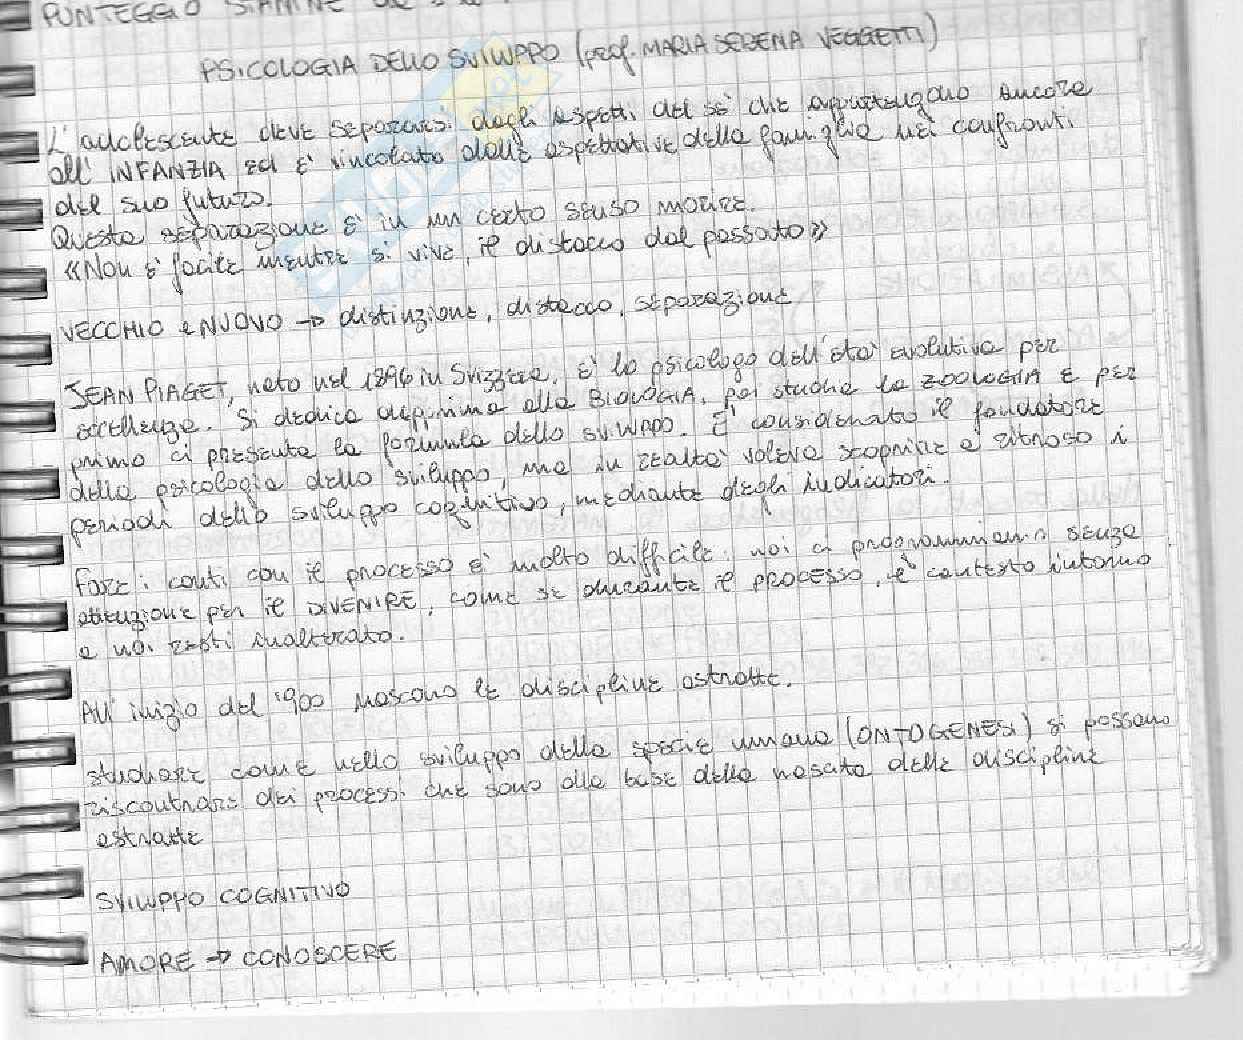 PUNTEGGIO
PSICOLOGIA DELLO SVILUPPO (prof. MARIA SERENA VEGGETTI)
L'adolescente deve separarsi dagli aspetti del sé che appartengono ancora
all'INFANZIA ed è vincolato dalle aspettative della famiglia nei confronti
del suo futuro.
Questa separazione è in un certo senso morire.
«Non è facile mentre si vive, il distacco dal passato»
VECCHIO e NUOVO → distinzione, distacco, separazione
JEAN PIAGET, nato nel 1896 in Svizzera, è lo psicologo dell'età evolutiva per
eccellenza. Si dedica dapprima alla BIOLOGIA, poi studia la ZOOLOGIA e per
primo ci presenta la formula dello sviluppo. È considerato il fondatore
della psicologia dello sviluppo, ma in realtà voleva scoprire a ritroso i
periodi dello sviluppo cognitivo, mediante degli indicatori.
Fare i conti con il processo è molto difficile, noi ci senza
attenzione per il DIVENIRE, come se durante il PROCESSO, il contesto intorno
a noi resti inalterato.
All'inizio del '900 nascono le discipline astratte.
studiare come nello sviluppo della specie umana (ONTOGENESI) si possano
riscontrare dei processi che sono alla base della nascita delle discipline
astratte
SVILUPPO COGNITIVO
AMORE → CONOSCERE